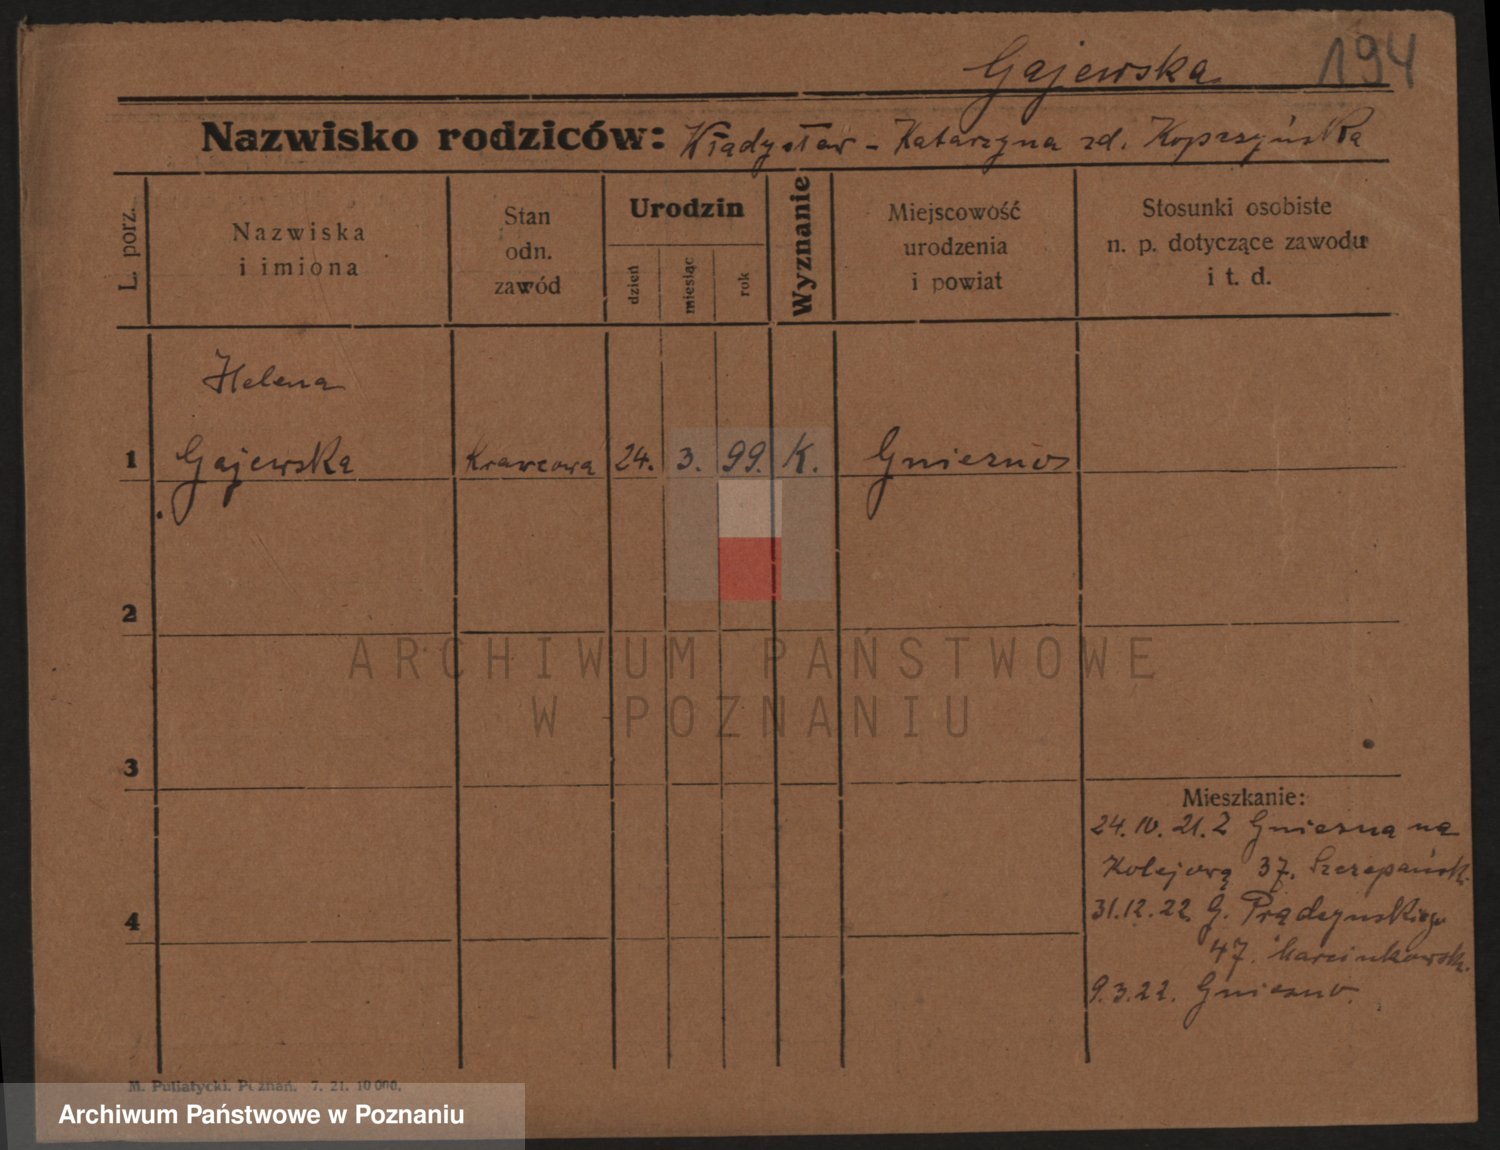 Gajewska 194
Nazwisko rodziców: Władysław - Katarzyna zd. Kopszyńska
L. porz.
Nazwiska
i imiona
Stan
odn.
zawód
Urodzin
dzień
miesiąc
rok
Wyznanie
Miejscowość
urodzenia
i powiat
Stosunki osobiste
n. p. dotyczące zawodu
i t. d.
Helena
1 Gajewska Krawcowa 24. 3. 99. K. Gniezno
2
ARCHIWUM PAŃSTWOWE
W POZNANIU
3
Mieszkanie:
24.10.21. Z Gniezna na
Kolejową 37. Szczepańsk.
4
31.12.22 G. Prądzyńskiego
47. Marcinkowsk.
9.3.22. Gniezno.
M. Putiatycki. Poznań. 7. 21. 10 000.
Archiwum Państwowe w Poznaniu